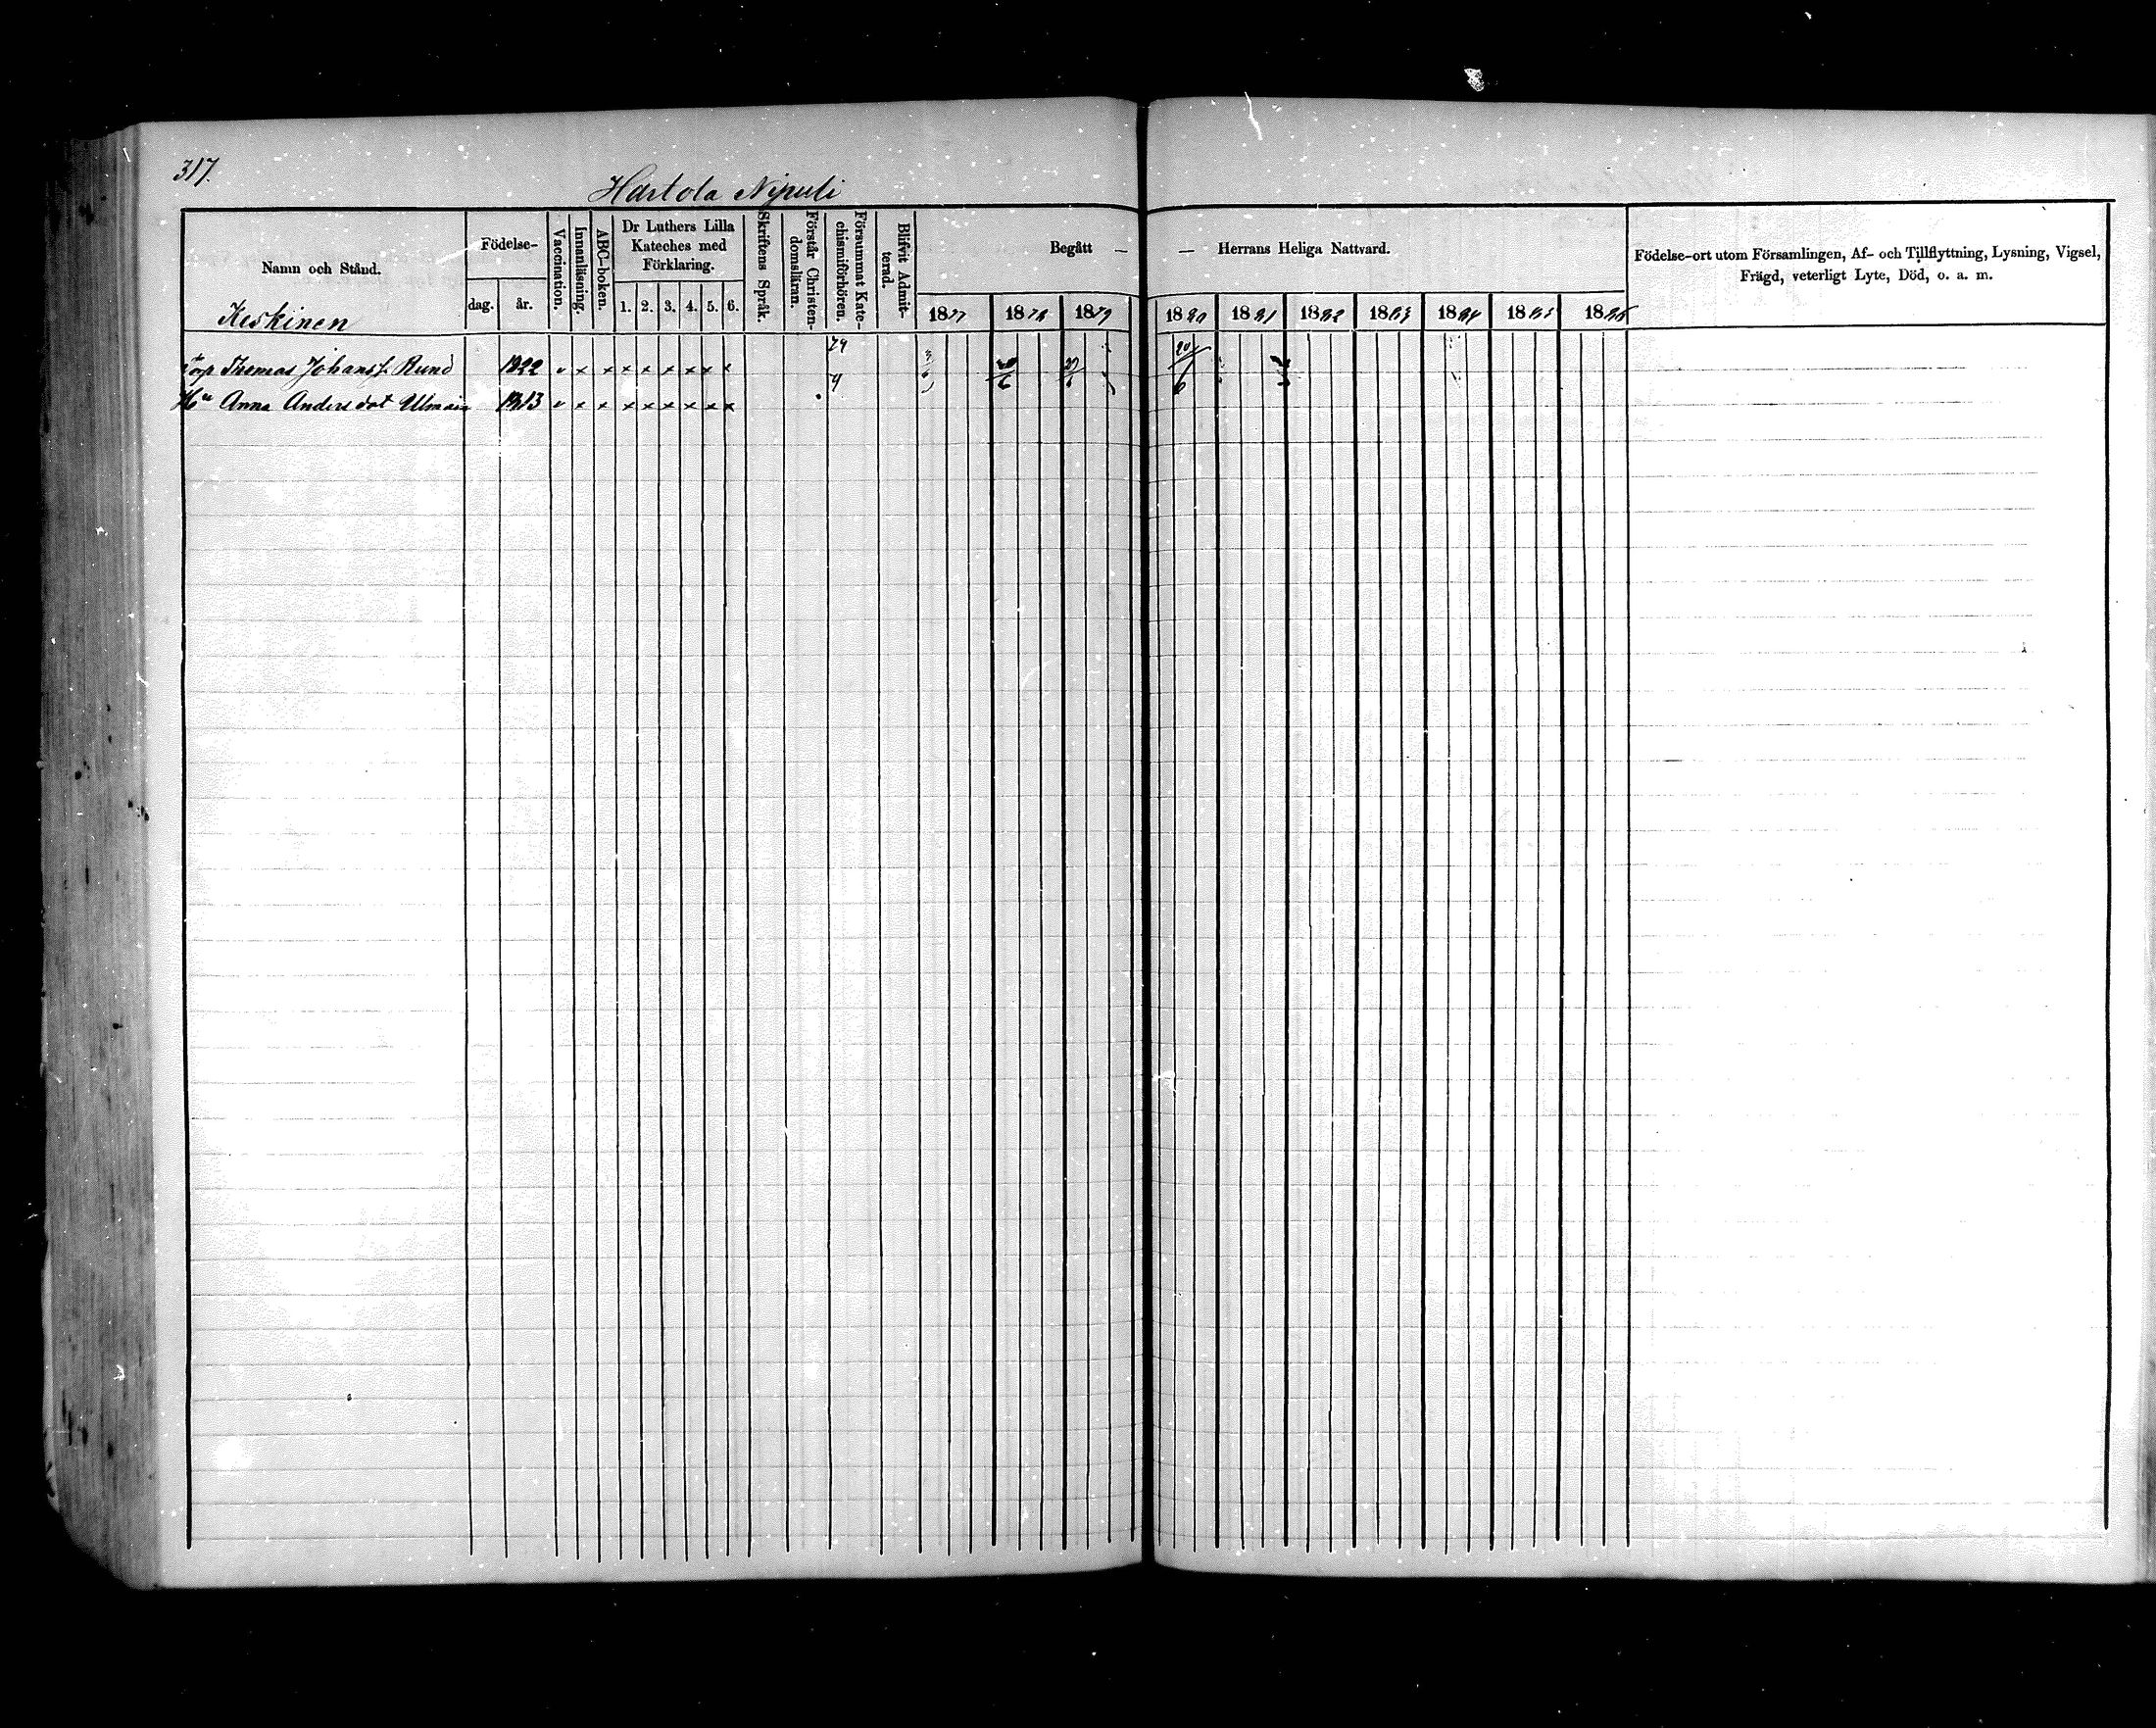 317.
Hartola Nipuli
Namn och Stånd.
Födelse-
dag. år.
Vaccination.
Innanläsning.
ABC-boken.
Dr Luthers Lilla
Kateches med
Förklaring.
1. 2. 3. 4. 5. 6.
Skriftens Språk.
Förstår Christen-
domsläran.
Försummat Kate-
chismiförhören.
Blifvit Admit-
terad.
Begått — — Herrans Heliga Nattvard.
1877 1878 1879 1880 1881 1882 1883 1884 1885
Födelse-ort utom Församlingen, Af- och Tillflyttning, Lysning, Vigsel,
Frägd, veterligt Lyte, Död, o. a. m.
Keskinen
79
Torp Thomas Johansf. Rund 1822 v x x x x x x x x
Hu Anna Andersdot 1813 v x x x x x x x x